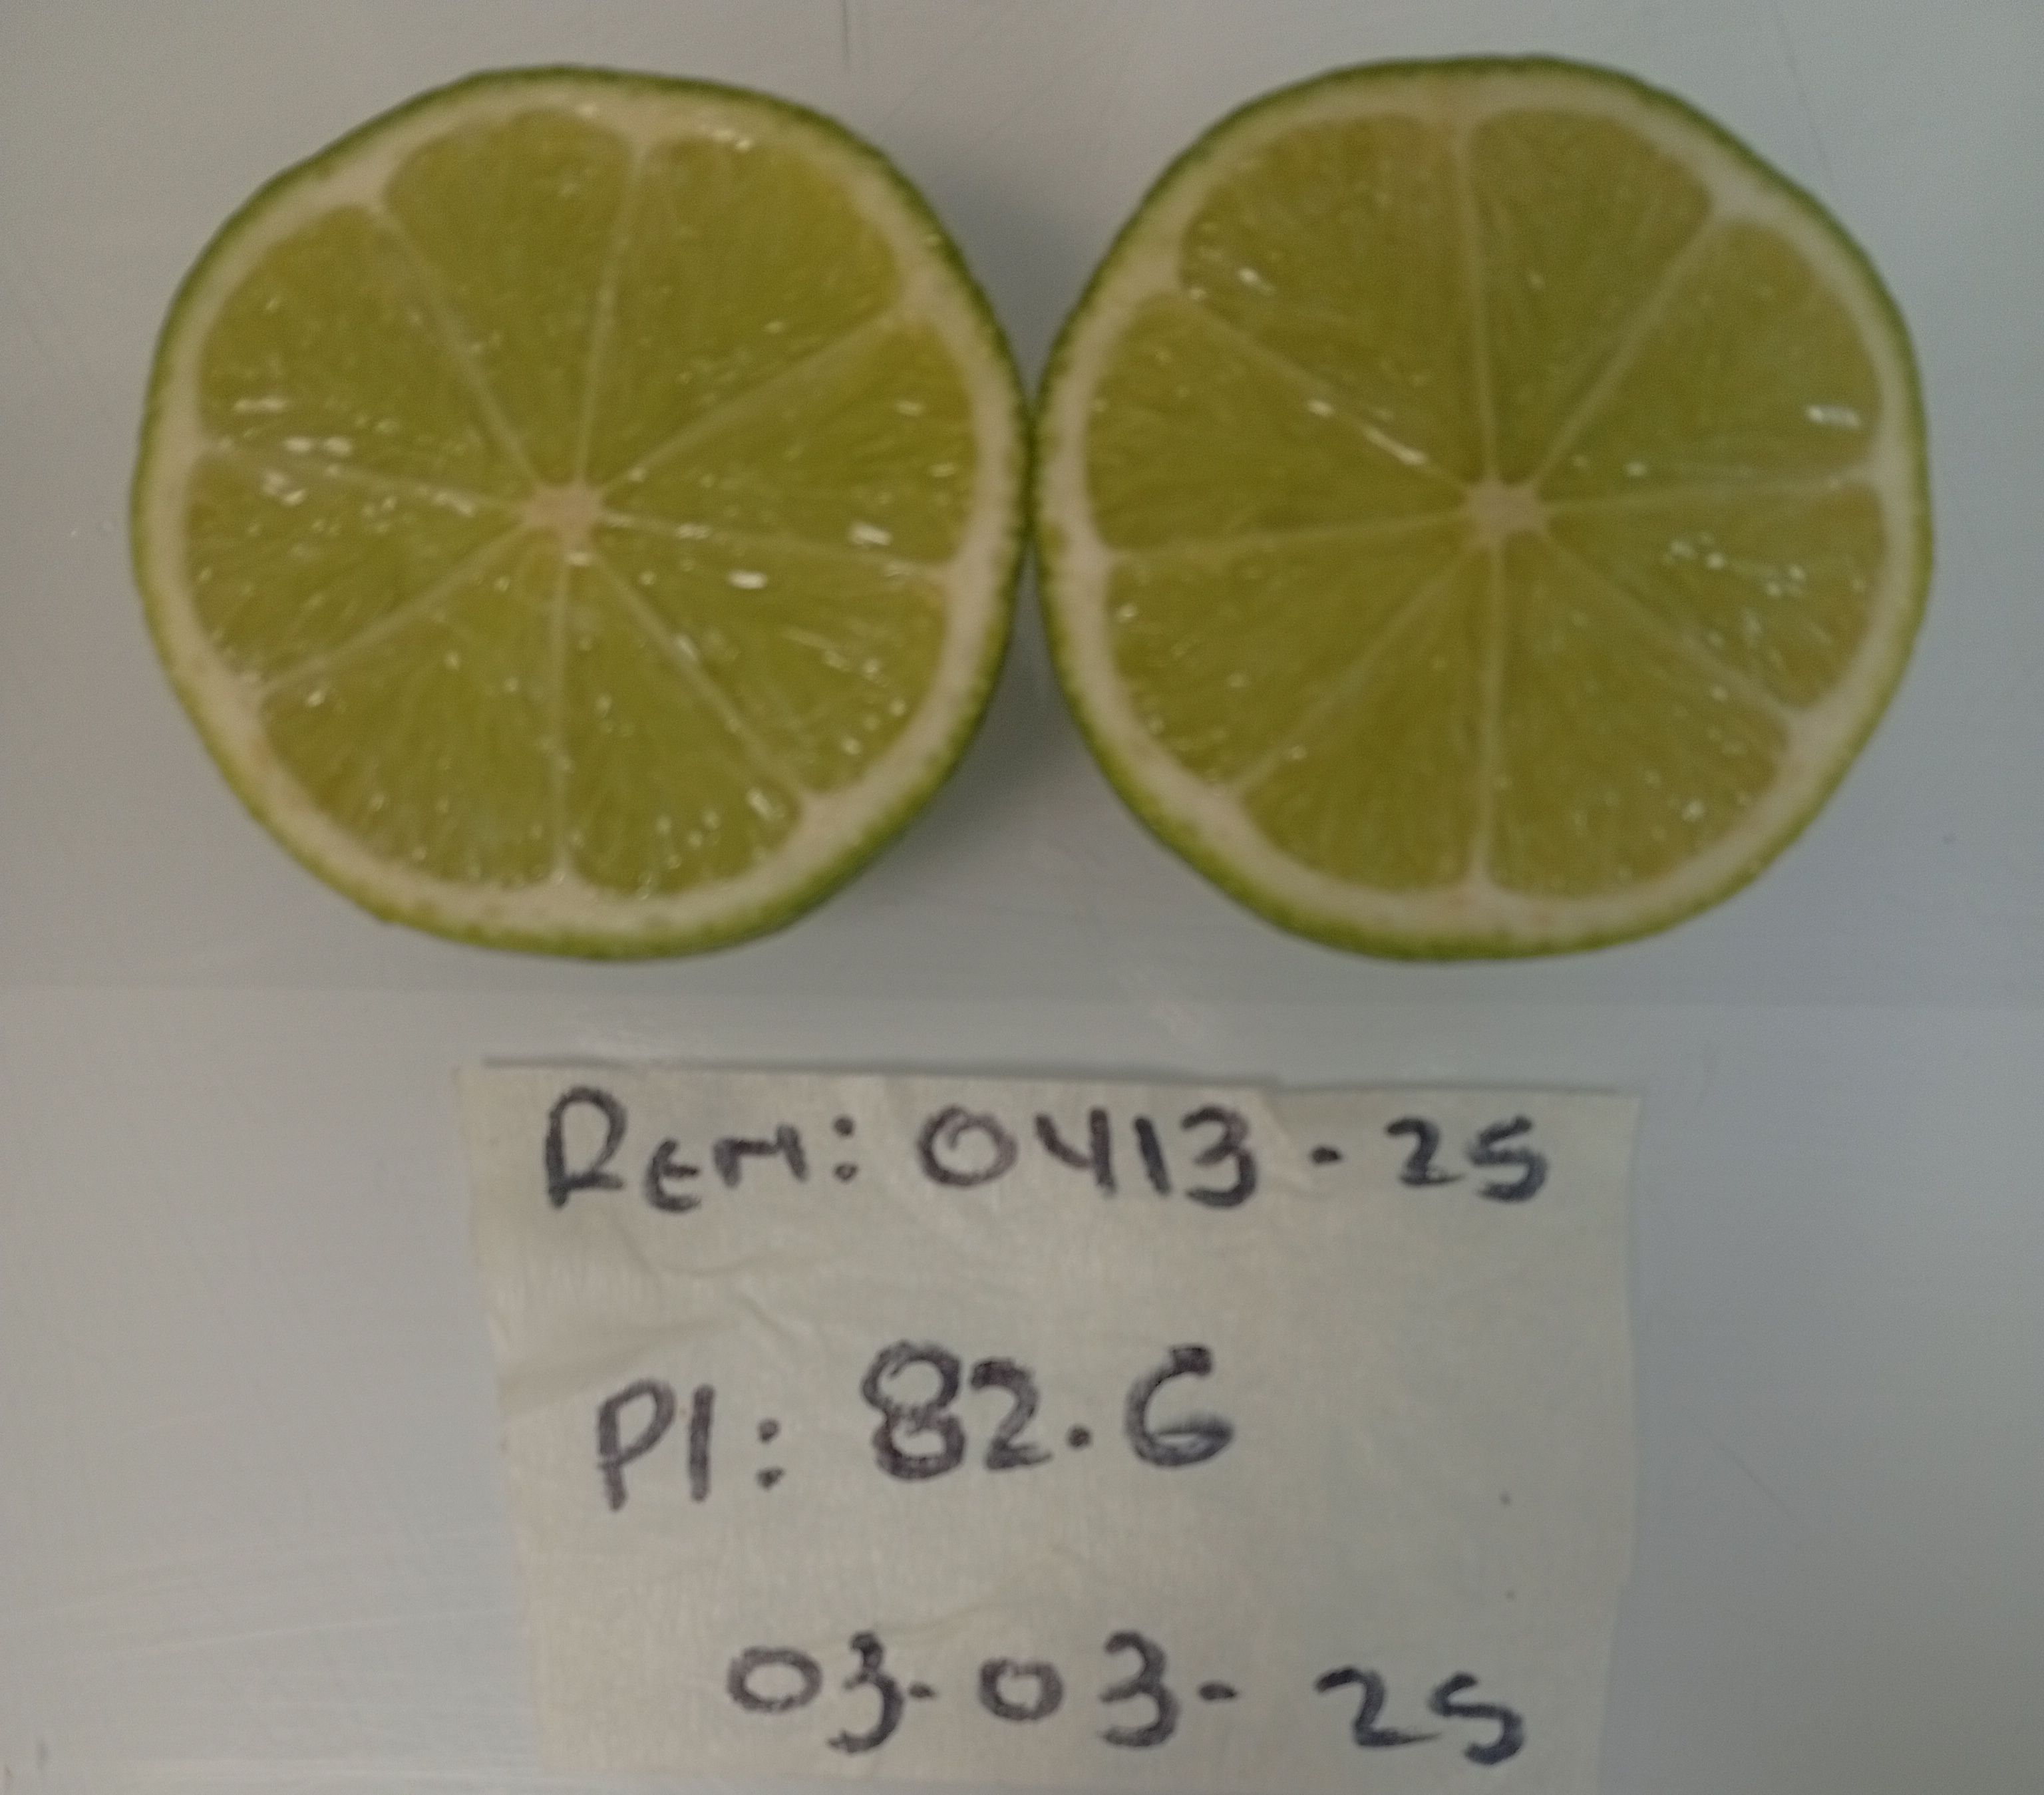 REM: 0413-25
PI: 82.6
03-03-25